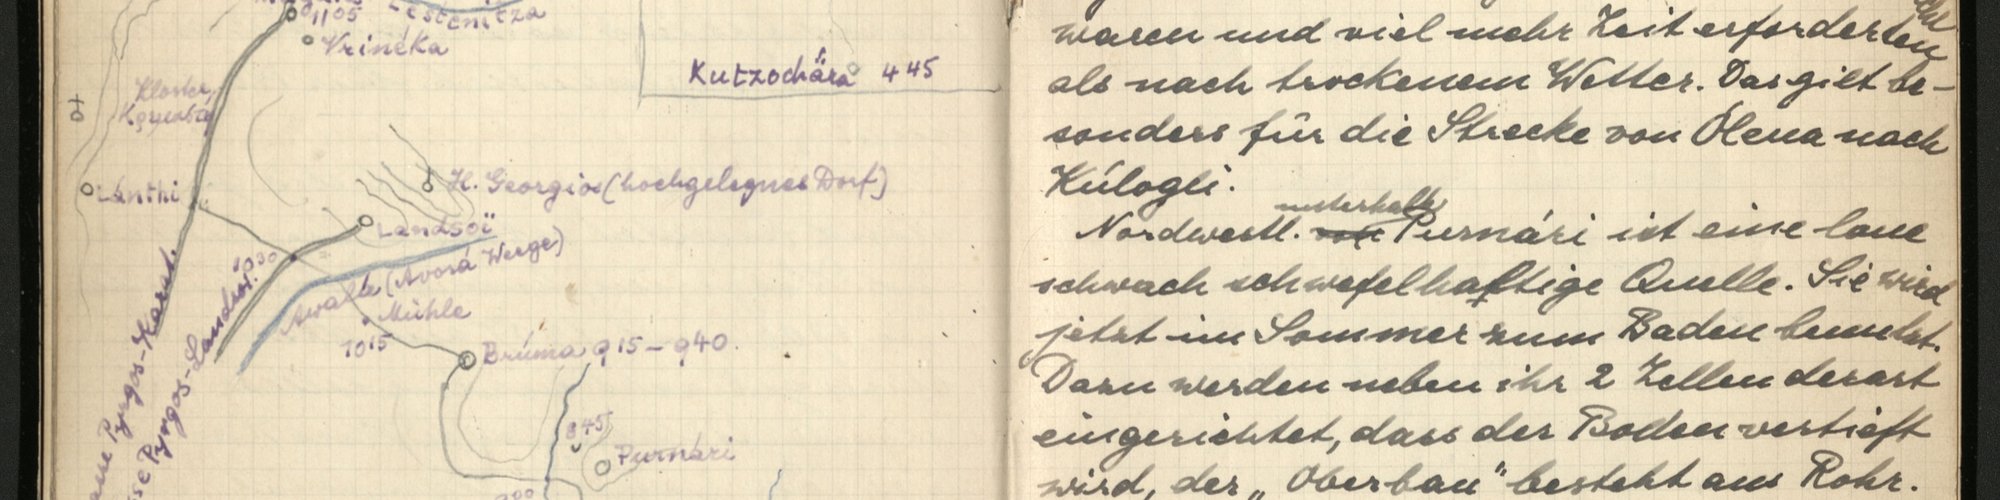 11 05 Lestenitza
Vrinéka
Kutzochära 4 45
Kloster
Lánthi
H. Georgios (hochgelegnes Dorf)
Landsoï
10 30
Awalle (Avorá Werge)
Mühle
10 15
Brúma 9 15 – 9 40.
8 45
Purnári
Pyrgos-Karat.
Pyrgos-Landsoï.
waren und viel mehr Zeit erforderten
als nach trockenem Wetter. Das gilt be-
sonders für die Strecke von Ólena nach
Kúlogli.
unterhalb
Nordwestl. von Purnári ist eine laue
schwach schwefelhaftige Quelle. Sie wird
jetzt im Sommer zum Baden benutzt.
Dazu werden neben ihr 2 Zellen derart
eingerichtet, dass der Boden vertieft
wird, der „Oberbau" besteht aus Rohr.